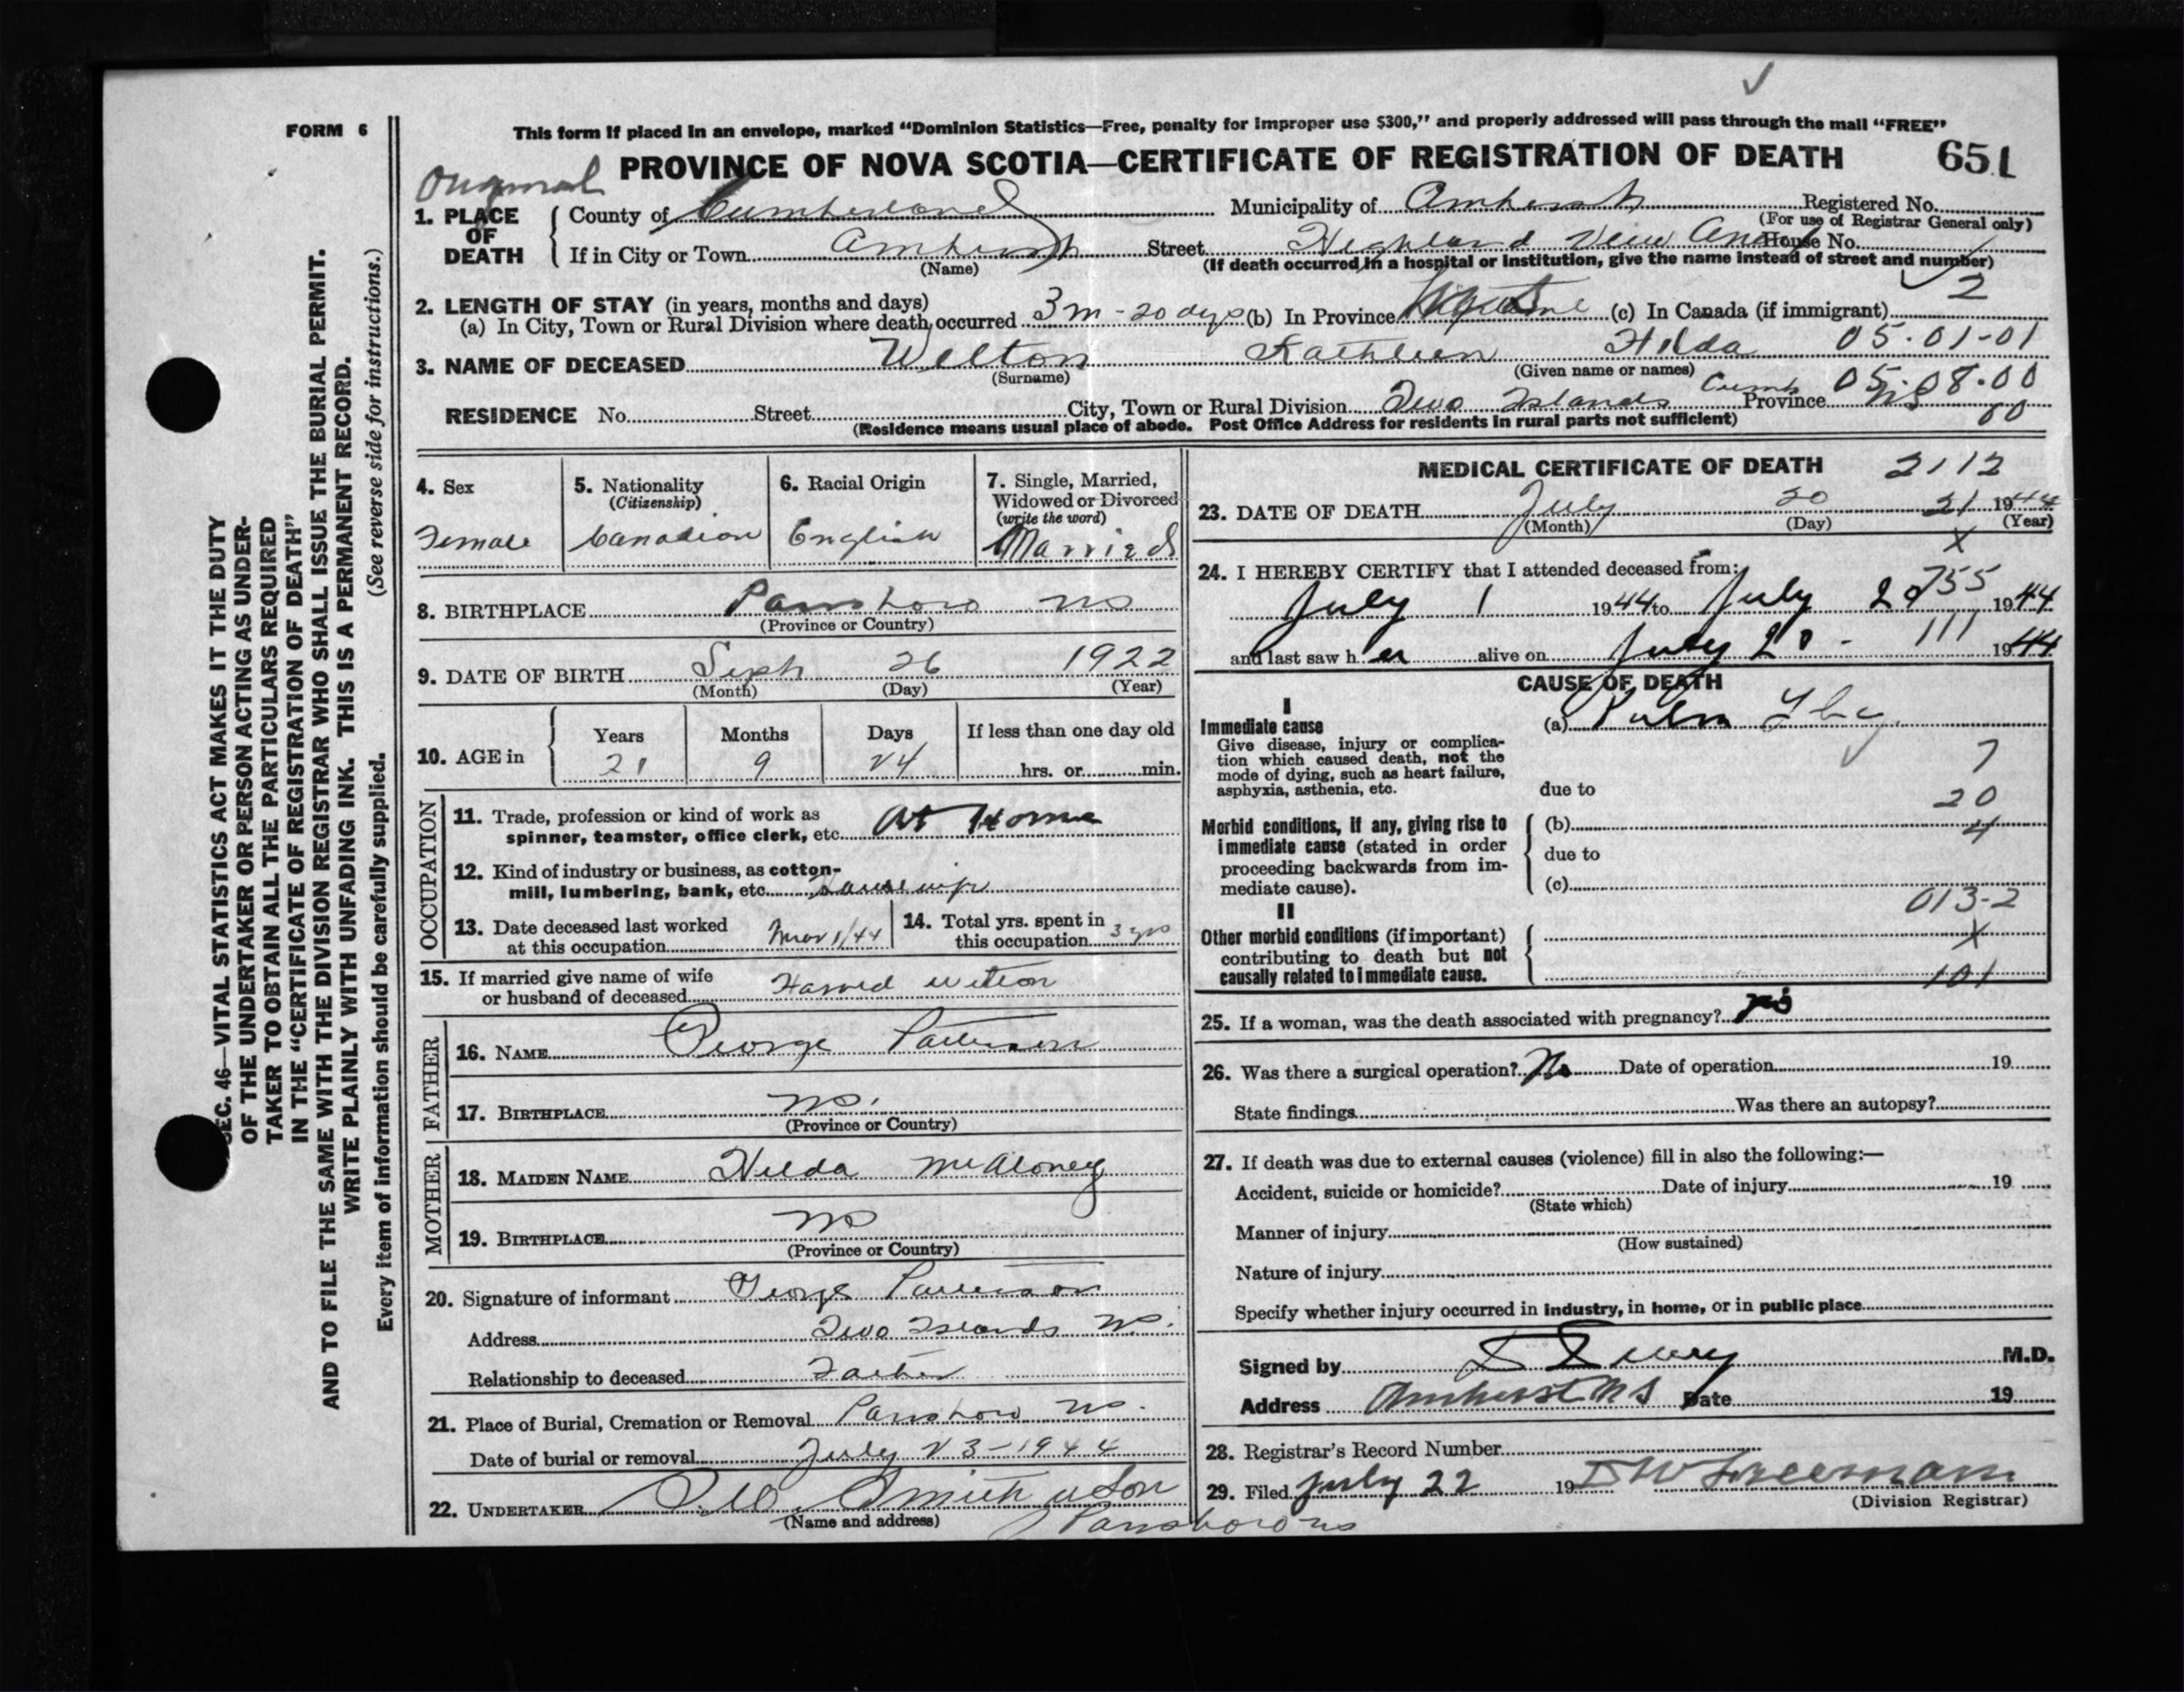 FORM 6
This form if placed in an envelope, marked “Dominion Statistics—Free, penalty for improper use $300,” and properly addressed will pass through the mail “FREE”
Original PROVINCE OF NOVA SCOTIA—CERTIFICATE OF REGISTRATION OF DEATH 651
1. PLACE OF DEATH
County of Cumberland Municipality of Amherst Registered No.
(For use of Registrar General only)
If in City or Town Amherst Street Highland View House No.
(Name) (If death occurred in a hospital or institution, give the name instead of street and number)
2. LENGTH OF STAY (in years, months and days) 2
(a) In City, Town or Rural Division where death occurred 3 m - 20 dys (b) In Province (c) In Canada (if immigrant)
3. NAME OF DECEASED Welton Kathleen Hilda 05·01-01
(Surname) (Given name or names)
RESIDENCE No. Street City, Town or Rural Division Two Islands Cumb Province NS 05·08·00
(Residence means usual place of abode. Post Office Address for residents in rural parts not sufficient) 60
4. Sex
Female
5. Nationality
(Citizenship)
Canadian
6. Racial Origin
English
7. Single, Married,
Widowed or Divorced
(write the word)
Married
8. BIRTHPLACE Parrsboro NS
(Province or Country)
9. DATE OF BIRTH Sept 26 1922
(Month) (Day) (Year)
10. AGE in
Years Months Days If less than one day old
21 9 24 hrs. or min.
OCCUPATION
11. Trade, profession or kind of work as
spinner, teamster, office clerk, etc. At Home
12. Kind of industry or business, as cotton-
mill, lumbering, bank, etc. Housewife
13. Date deceased last worked
at this occupation Mar 1/44
14. Total yrs. spent in
this occupation 3 yrs
15. If married give name of wife
or husband of deceased Welton
FATHER
16. NAME George Patterson
17. BIRTHPLACE NS.
(Province or Country)
MOTHER
18. MAIDEN NAME Hilda McAloney
19. BIRTHPLACE NS
(Province or Country)
20. Signature of informant George Patterson
Address Two Islands NS.
Relationship to deceased Father
21. Place of Burial, Cremation or Removal Parrsboro NS.
Date of burial or removal July 23-1944
22. UNDERTAKER Smith & Son
(Name and address) Parrsboro NS
MEDICAL CERTIFICATE OF DEATH 2112
23. DATE OF DEATH July 20 21 1944
(Month) (Day) (Year)
X
24. I HEREBY CERTIFY that I attended deceased from:
July 1 1944 to July 20 1944
755
and last saw her alive on July 20 - 1944
111
CAUSE OF DEATH
I
Immediate cause
Give disease, injury or complica-
tion which caused death, not the
mode of dying, such as heart failure,
asphyxia, asthenia, etc.
(a) Pulm Tbc
7
due to
20
Morbid conditions, if any, giving rise to
immediate cause (stated in order
proceeding backwards from im-
mediate cause).
(b) 4
due to
(c)
013-2
II
Other morbid conditions (if important)
contributing to death but not
causally related to immediate cause.
X
101
25. If a woman, was the death associated with pregnancy?
26. Was there a surgical operation? No Date of operation 19
State findings Was there an autopsy?
27. If death was due to external causes (violence) fill in also the following:—
Accident, suicide or homicide? Date of injury 19
(State which)
Manner of injury
(How sustained)
Nature of injury
Specify whether injury occurred in industry, in home, or in public place
Signed by M.D.
Address Amherst NS Date 19
28. Registrar's Record Number
29. Filed July 22 19 Freeman
(Division Registrar)
SEC. 46—VITAL STATISTICS ACT MAKES IT THE DUTY
OF THE UNDERTAKER OR PERSON ACTING AS UNDER-
TAKER TO OBTAIN ALL THE PARTICULARS REQUIRED
IN THE “CERTIFICATE OF REGISTRATION OF DEATH”
AND TO FILE THE SAME WITH THE DIVISION REGISTRAR WHO SHALL ISSUE THE BURIAL PERMIT.
WRITE PLAINLY WITH UNFADING INK. THIS IS A PERMANENT RECORD.
Every item of information should be carefully supplied. (See reverse side for instructions.)